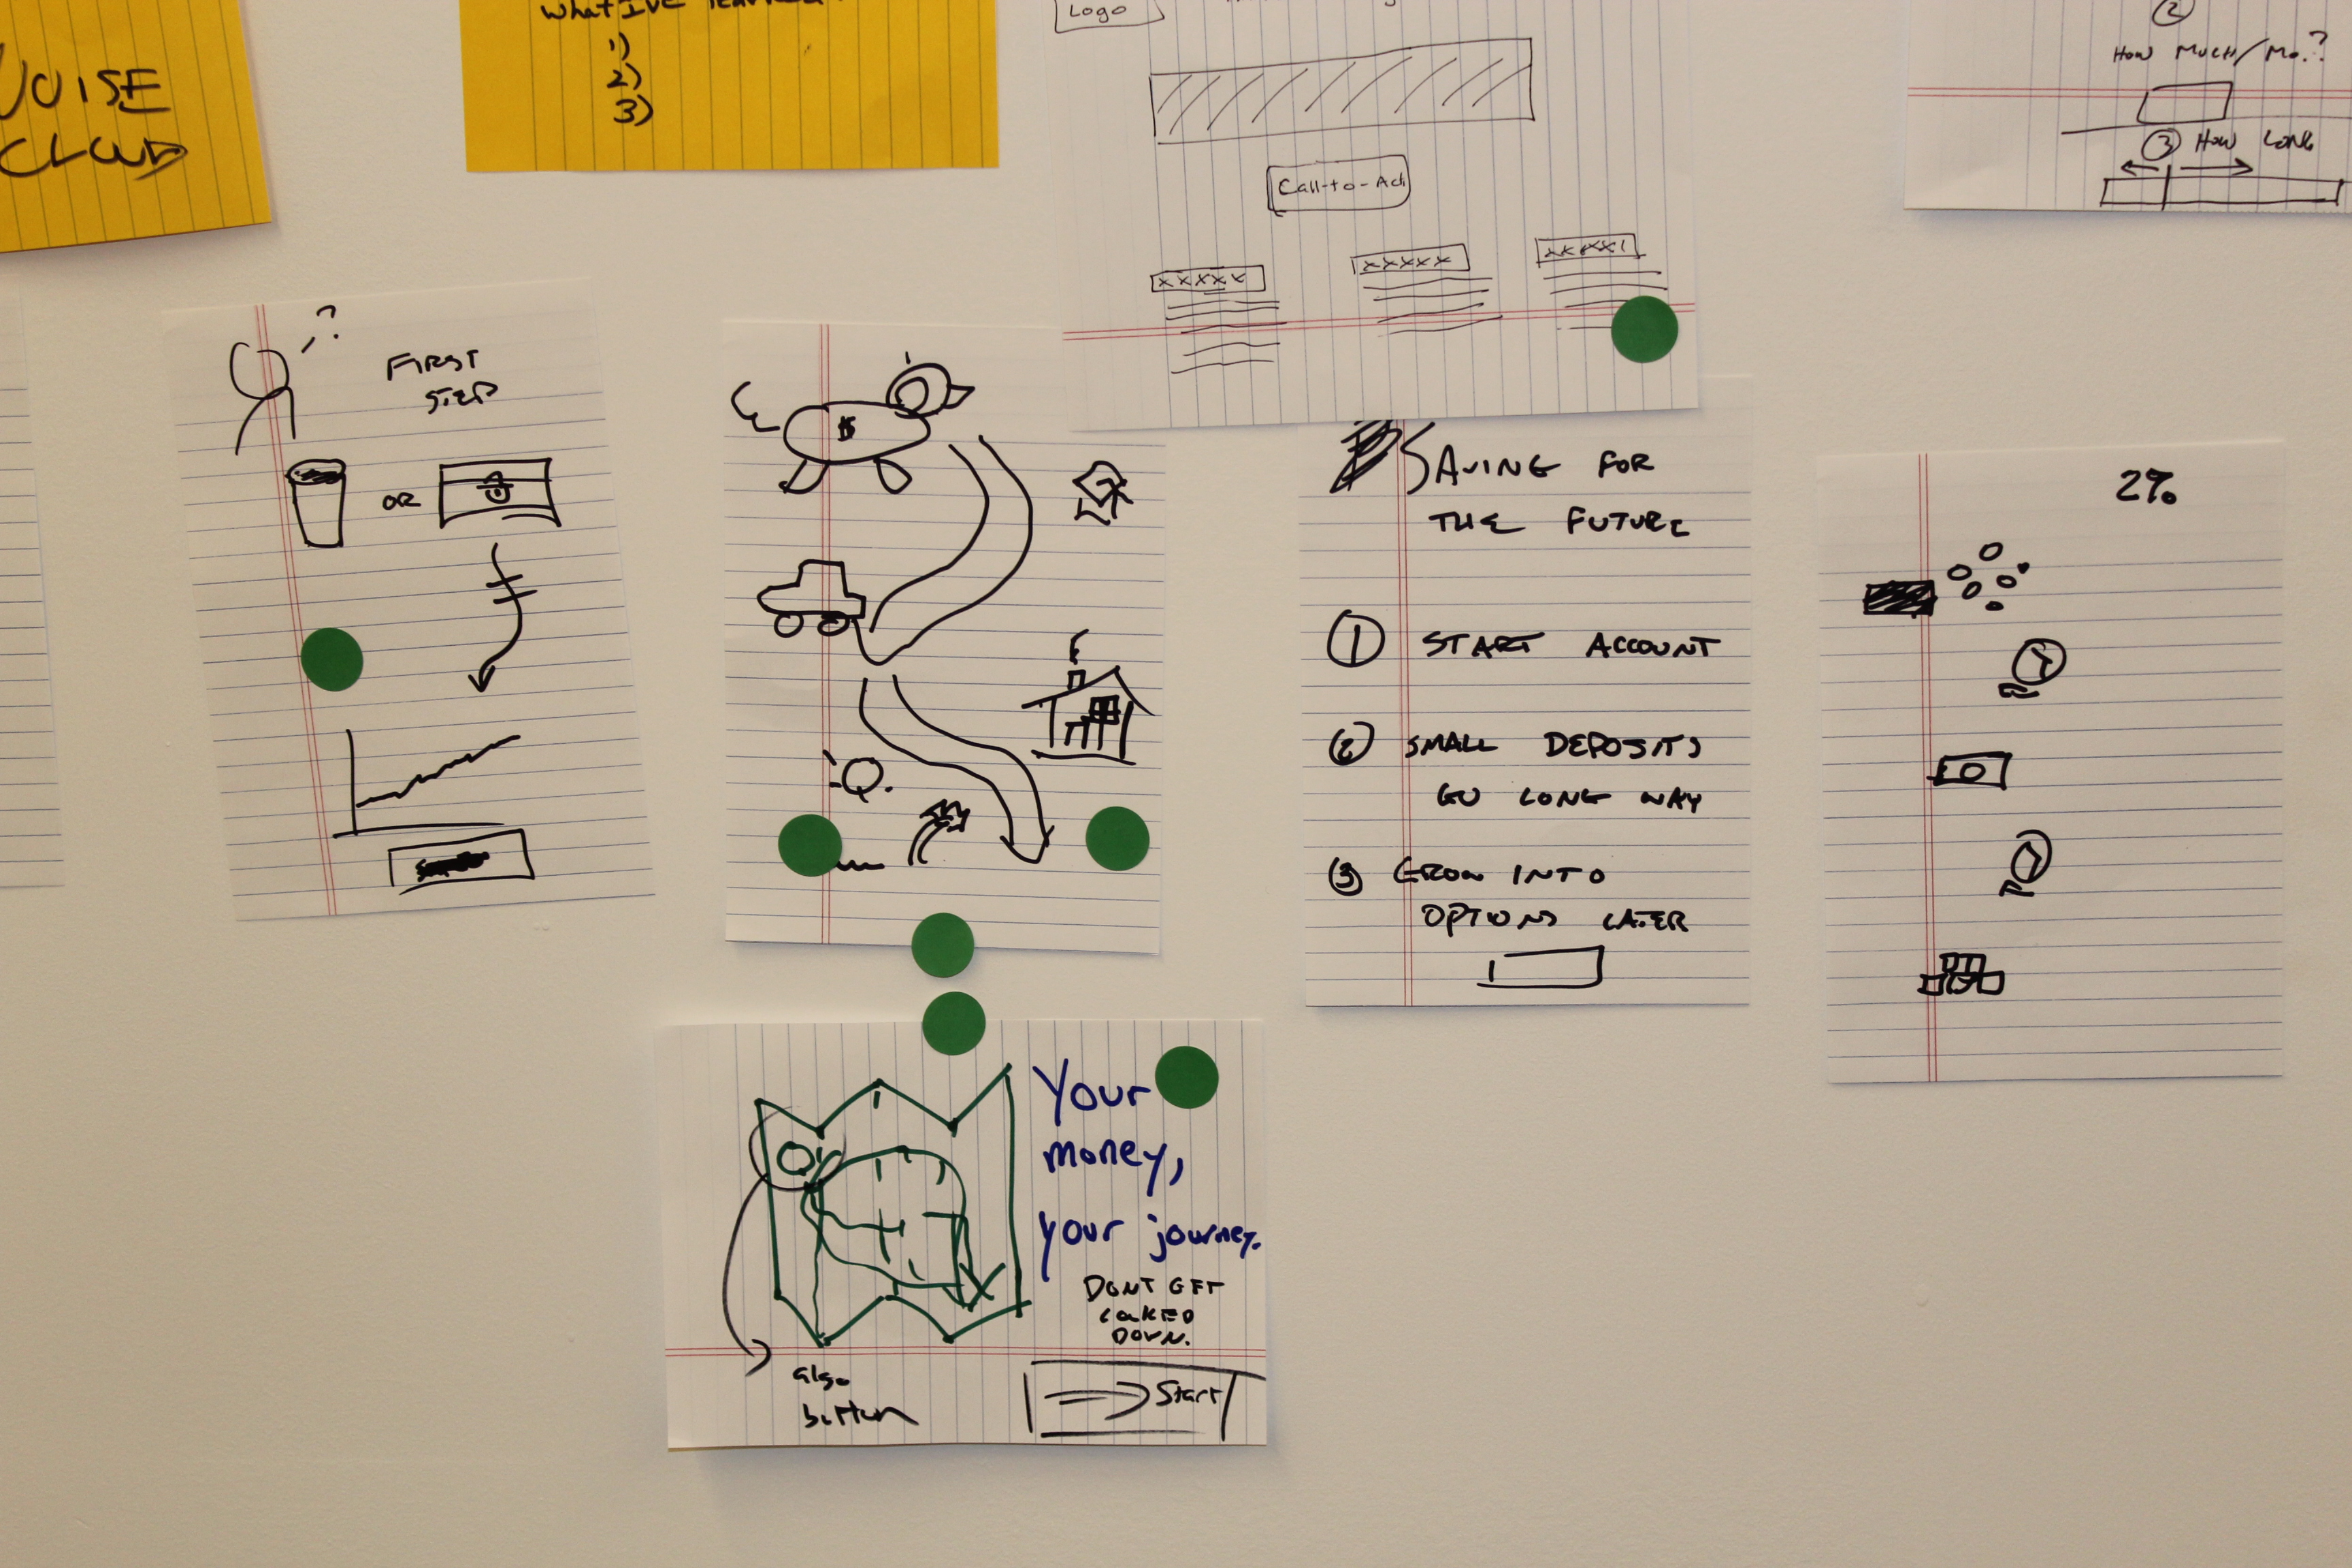 What I've learned:
1)
2)
3)
Logo
Call-to-Acti
xxxxx
xxxxx
xxxxxl
2
How Much/Mo.?
3 How Long
CLOUD
?
FIRST
STEP
OR
$
SAVING FOR
THE FUTURE
1 START ACCOUNT
2 SMALL DEPOSITS
GO LONG WAY
3 GROW INTO
OPTIONS LATER
2%
Your
money,
your journey.
DONT GET
LOCKED
DOWN.
algo
button
Start